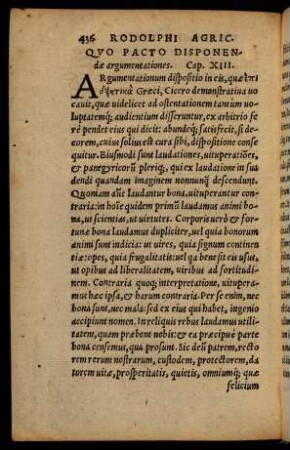 436 RODOLPHI AGRIC.
QVO PACTO DISPONEN-
dæ argumentationes. Cap. XIII.
ARgumentationum dispositio in eis, quæ
Græci, Cicero demonstratiua uo
cauit, quæ uidelicet ad ostentationem tantùm uo-
luptatemq; audientium disseruntur, ex arbitrio fe
rè pendet eius qui dicit: abundeq; satisfecit, si de-
corem, cuius solius est cura sibi, dispositione conse
quitur. Eiusmodi sunt laudationes, uituperatiões,
& panegyricorũ pleriq;, qui ex laudatione in sua
dendi quandam imaginem nonnunq̃ descendunt.
Quoniam aũt laudantur bona, uituperantur con-
traria: in hoĩe quidem primũ laudamus animi bo
na, ut scientias, ut uirtutes. Corporis uerò & for-
tunæ bona laudamus dupliciter, uel quia bonorum
animi sunt indicia: ut uires, quia signum continen
tiæ: opes, quia frugalitatis: uel q̃a bene sit eis usus,
ut opibus ad liberalitatem, uiribus ad fortitudi-
nem. Contraria quoq; interpretatione, uitupera-
mus hæc ipsa, & harum contraria. Per se enim, nec
bona sunt, nec mala: sed ex eius qui habet, ingenio
accipiunt nomen. In reliquis rebus laudamus utili-
tatem, quam præbent nobis: & ea præcipuè parte
bona censemus, qua prosunt. Sic deũ patrem, recto
rem rerum nostrarum, custodem, protectorem, da
torem uitæ, prosperitatis, quietis, omniumq; quæ
felicium